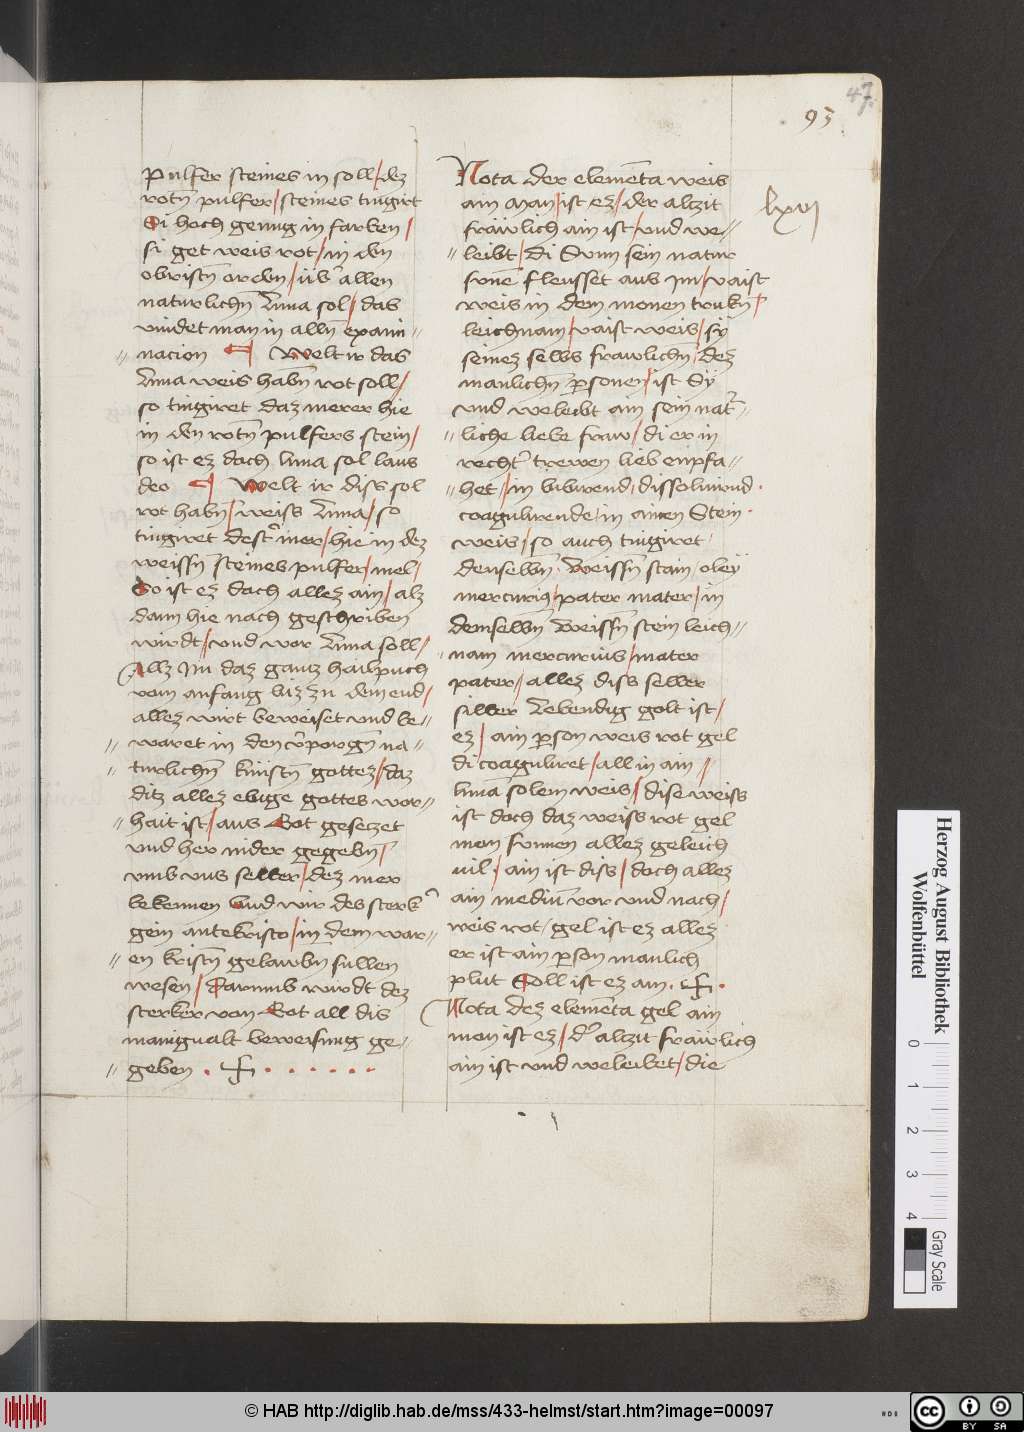 47
93
lxvi
Pulfer steines in soll / dez
rotn̄ pulfer / steines tingirt
Si hoch genug in farben /
si get weis rot / in dn
obristn̄ ordn / üb' allen
naturlichn̄ Luna sol / das
vindet man in alln̄ exami //
// nacion Welt ir das
Luna weis habn̄ rot soll /
so tingiret daz merer hie
in dn rotn̄ pulfers stein /
so ist ez dach luna sol laus
deo Welt ir diss sol
rot habn̄ / weiss Luna / so
tingiret dest' mer / hie in dez
weissn̄ steines pulfer / mel /
So ist ez dach allez ain / alz
dann hie nach geschriben
wirdt / und vor Luna soll /
Allz Im daz gantz hailpuch
vom anfang biz zu dem end /
allez wirt beweiset und be //
// waret in den v'porgn̄ na //
// turlichn̄ künstn̄ gottez / daz
ditz allez ebige gottes wor //
// hait ist / aus Got gesetzet
und her nider gegebn̄ /
umb uns selber / dez mer
bekennen und wir des sterk'
gein antekristo / in dem war //
// en kristn̄ gelawbn̄ sullen
wesen / Darumb wirdt dez
sterker von Got all dis
manigualt beweisung ge //
// geben .
Nota der elemēta weis
ain man / ist ez / der alzit
fräwlich ain ist / und we //
// leibt / di Sunn sein natur
sunē fleusset aus im / vaist
weis in dem monen trukn̄ /
leichnam / vaist weis / sÿ
seinez selbs frawlichn̄ / dez
manlichn̄ personen / ist Sÿ
und weleibt ain sein nat'r //
// liche liebe fraw / di er in
recht' trewen lieb enpfa //
// het / in bibirend / dissoluirnd .
coagulirende / in ainen Stein .
weis / so auch tingiret .
denselbn̄ . Weissn̄ stain / oleÿ
mercuriꝰ / pater mater / in
demselbn̄ Weissn̄ stein leich //
// nam mercurius / mater
pater / allez diss selber
silber Lebendig golt ist /
ez / ain person weis rot gel
di coaguliret / all in ain /
lunā solem weis / dise weiss
ist doch daz weiss rot gel
mon sunnen allez geleich
vil / ain ist diss / doch allez
ain mediū vor und nach /
weis rot / gel ist ez allez
er ist ain person manlich
plut Soll ist ez am .
Nota dez elemēta gel ain
mon ist ez / d' alzit fräwlich
ain ist und weleibet / die
Herzog August Bibliothek
Wolfenbüttel
0 1 2 3 4
Gray Scale
© HAB http://diglib.hab.de/mss/433-helmst/start.htm?image=00097
cc BY SA